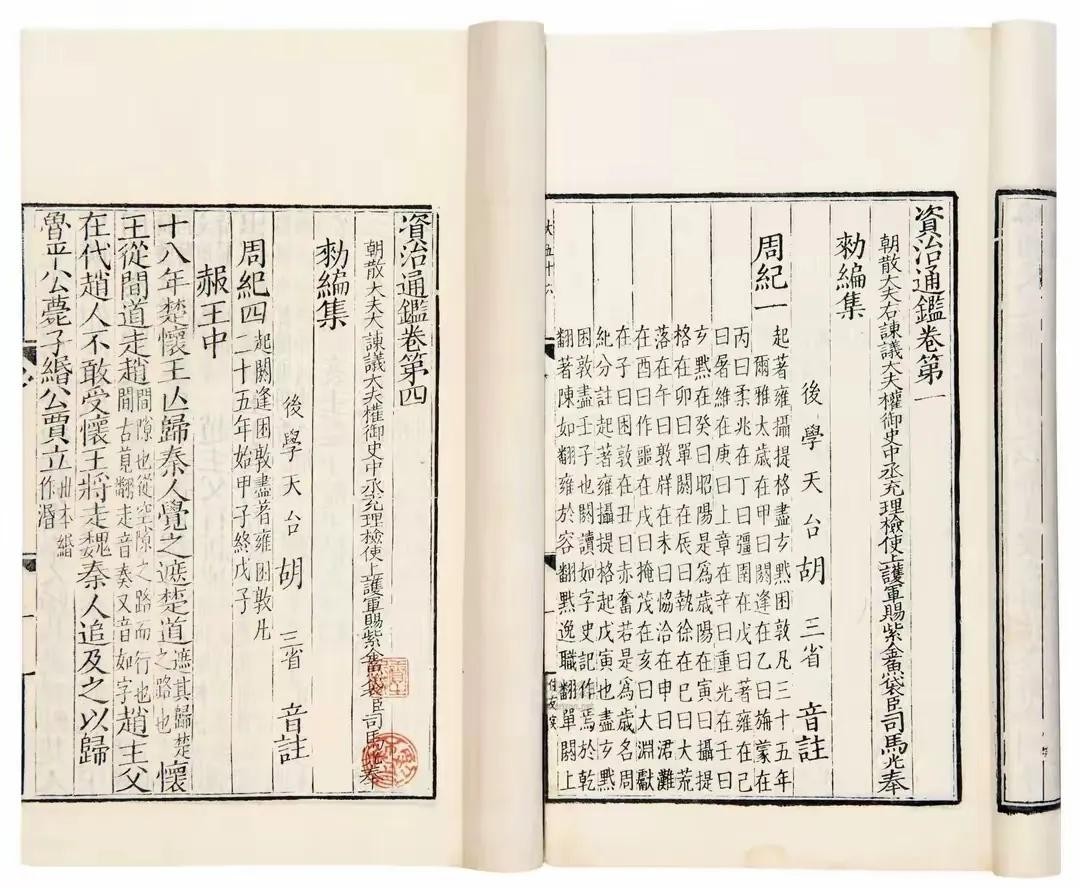 資治通鑑卷第一
朝散大夫右諫議大夫權御史中丞充理檢使上護軍賜紫金魚袋臣司馬光奉
勑編集
後學天台胡三省音註
周紀一
起著雍攝提格盡玄黓困敦凡三十五年
爾雅太歲在甲曰閼逢在乙曰旃蒙在
丙曰柔兆在丁曰彊圉在戊曰著雍在己
曰屠維在庚曰上章在辛曰重光在壬曰
玄黓在癸曰昭陽是爲歲陽在寅曰攝提
格在卯曰單閼在辰曰執徐在巳曰大荒
落在午曰敦牂在未曰協洽在申曰涒灘
在酉曰作噩在戌曰掩茂在亥曰大淵獻
在子曰困敦在丑曰赤奮若是爲歲名周
紀分註起著雍攝提格起戊寅也盡玄黓
困敦盡壬子也閼讀如字史記作焉於乾
翻著陳如翻雍於容翻黓逸職翻單閼上
資治通鑑卷第四
朝散大夫右諫議大夫權御史中丞充理檢使上護軍賜紫金魚袋臣司馬光奉
勑編集
後學天台胡三省音註
周紀四 起閼逢困敦盡著雍困敦凡二十五年始甲子終戊子
赧王中
十八年楚懷王亾歸秦人覺之遮楚道遮其歸楚之路也懷
王從間道走趙間隙也從空隙之路而行也間古莧翻走音奏又音如字趙主父
在代趙人不敢受懷王將走魏秦人追及之以歸
魯平公薨子緡公賈立世本緡作湣